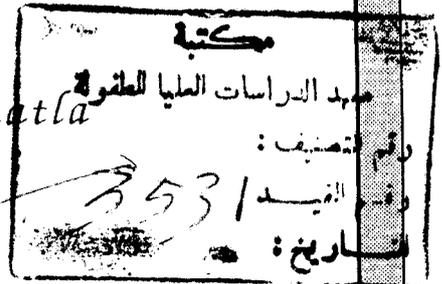 مكتبة
معهد الدراسات العليا للطفولة
atla
رقم التصنيف :
رقم القيد
التاريخ :